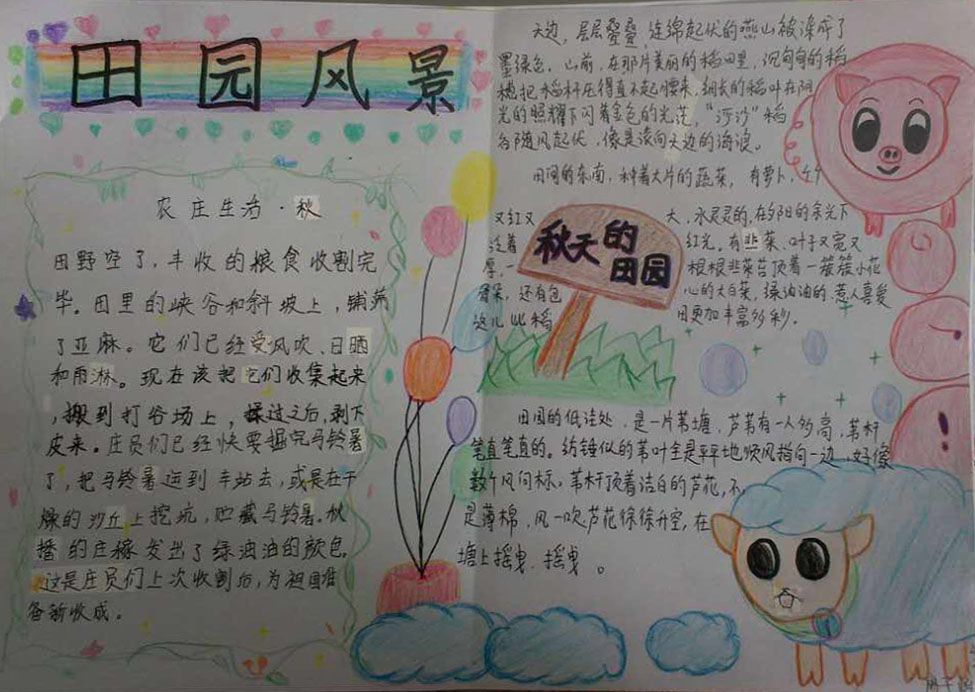 田园风景
农庄生活·秋
田野空了，丰收的粮食收割完
毕。田里的峡谷和斜坡上，铺满
了亚麻。它们已经受风吹、日晒
和雨淋。现在该把它们收集起来
，搬到打谷场上，揉过之后，剥下
皮来。庄员们已经快要掘完马铃薯
了，把马铃薯运到车站去，或是在干
燥的沙丘上挖坑，贮藏马铃薯。秋
播的庄稼发出了绿油油的颜色。
这是庄员们上次收割后，为祖国准
备新收成。
天边，层层叠叠，连绵起伏的燕山被染成了
墨绿色。山前，在那片美丽的稻田里，沉甸甸的稻
穗把水稻秆压得直不起腰来，细长的稻叶在阳
光的照耀下闪着金色的光茫，“沙沙”稻
谷随风起伏，像是滚向天边的海浪。
田园的东南，种着大片的蔬菜，有萝卜，个个
又红又
大，水灵灵的，在夕阳的余光下
泛着
红光。有韭菜、叶子又宽又
厚，一
根根韭菜苔顶着一簇簇小花
骨朵，还有包
心的大白菜，绿油油的惹人喜爱
这儿比稻
田更加丰富多彩。
秋天的
田园
田园的低洼处，是一片苇塘，芦苇有一人多高，苇杆
笔直笔直的。纺锤似的苇叶全是平平地顺风指向一边，好像
数个风向标。苇杆顶着洁白的芦花，不
是薄棉，风一吹芦花徐徐升空，在
塘上摇曳、摇曳。